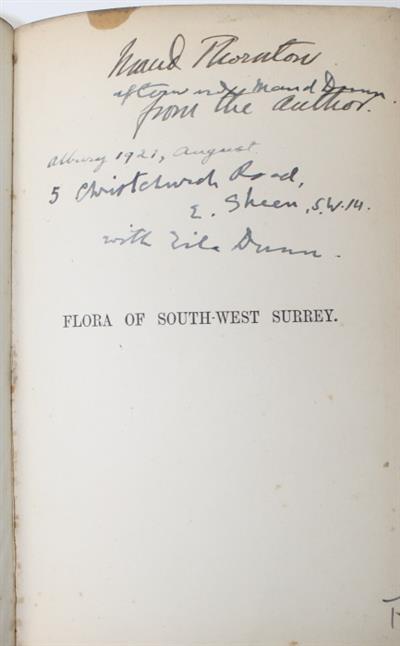 Maud Thornton
afterwards Maud Dunn.
from the author.
Albury 1921, August
5 Christchurch Road,
E. Sheen, S.W.14.
with Eila Dunn.
FLORA OF SOUTH-WEST SURREY.